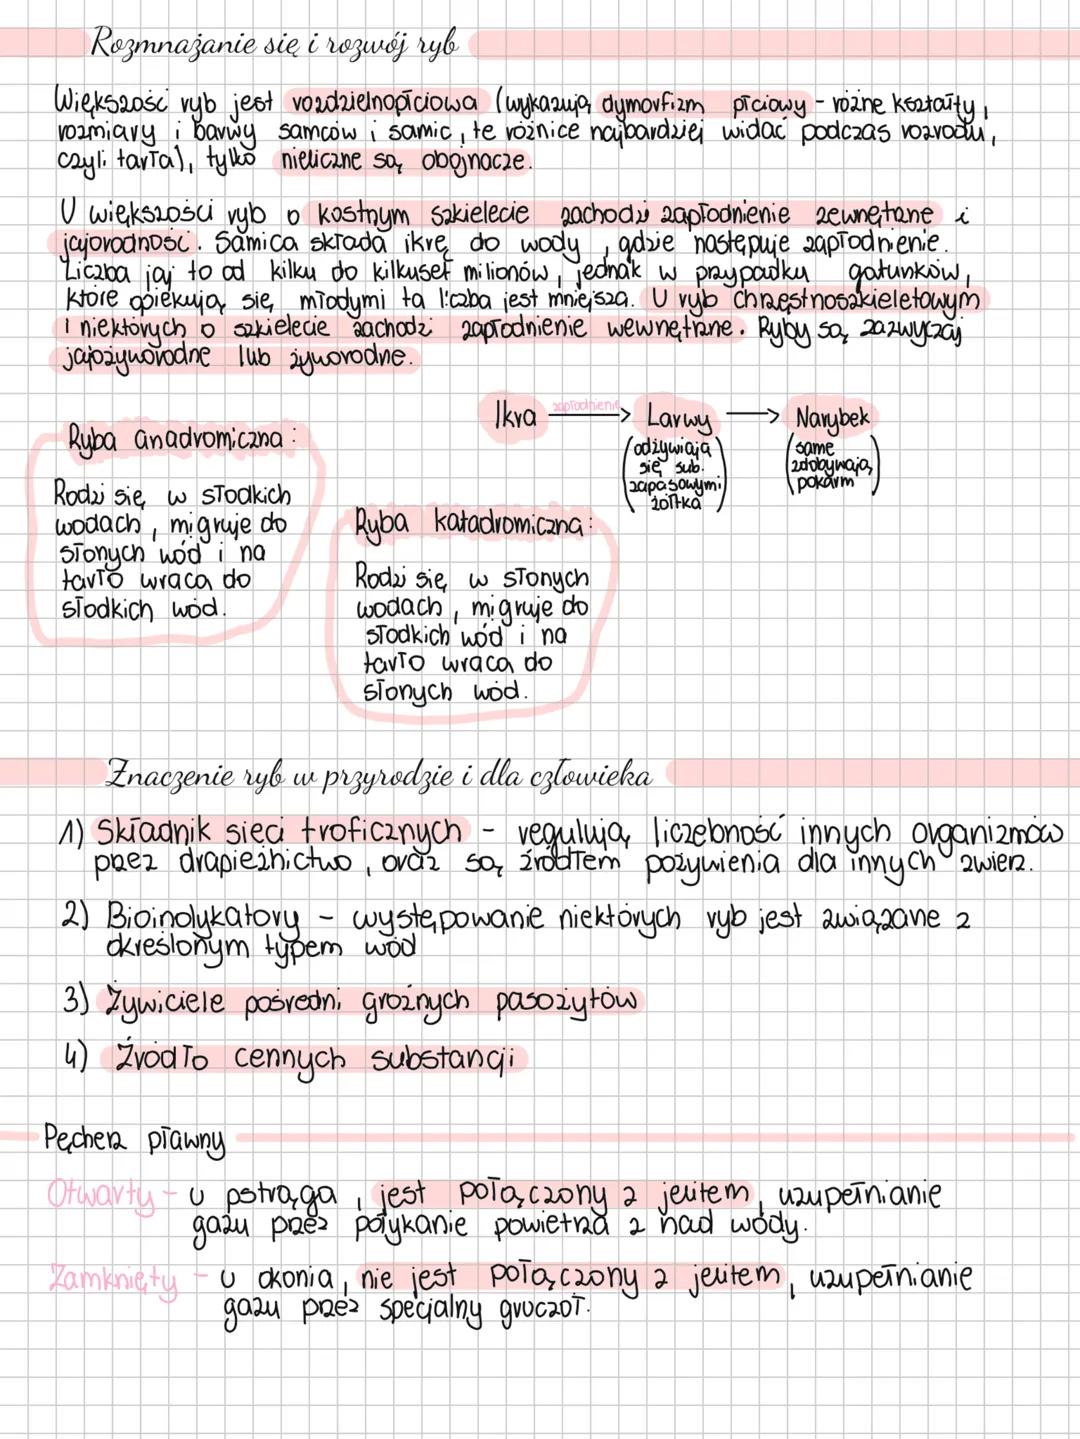 Rozmnażanie się i rozwój ryb
Większość ryb jest rozdzielnopłciowa (wykazują dymorfizm płciowy - różne kształty,
rozmiary i barwy samców i samic, te różnice najbardziej widać podczas rozrodu,
czyli tarła), tylko nieliczne są obojnacze.
U większości ryb o kostnym szkielecie zachodzi zapłodnienie zewnętrzne i
jajorodność. Samica składa ikrę do wody, gdzie następuje zapłodnienie.
Liczba jaj to od kilku do kilkuset milionów, jednak w przypadku gatunków,
które opiekują się młodymi ta liczba jest mniejsza. U ryb chrzęstnoszkieletowym
i niektórych o szkielecie zachodzi zapłodnienie wewnętrzne. Ryby są zazwyczaj
jajożyworodne lub żyworodne.
Ikra zapłodnienie Larwy Narybek
(odżywiają się sub. zapasowymi żółtka)
(same zdobywają pokarm)
Ryba anadromiczna:
Rodzi się w słodkich
wodach, migruje do
słonych wód i na
tarło wraca do
słodkich wód.
Ryba katadromiczna:
Rodzi się w słonych
wodach, migruje do
słodkich wód i na
tarło wraca do
słonych wód.
Znaczenie ryb w przyrodzie i dla człowieka
1) Składnik sieci troficznych - regulują liczebność innych organizmów
przez drapieżnictwo, oraz są źródłem pożywienia dla innych zwierz.
2) Bioindykatory - występowanie niektórych ryb jest związane z
określonym typem wód
3) Żywiciele pośredni groźnych pasożytów
4) Źródło cennych substancji
Pęcherz pławny
Otwarty - u pstrąga, jest połączony z jelitem, uzupełnianie
gazu przez połykanie powietrza z nad wody.
Zamknięty - u okonia, nie jest połączony z jelitem, uzupełnianie
gazu przez specjalny gruczoł.